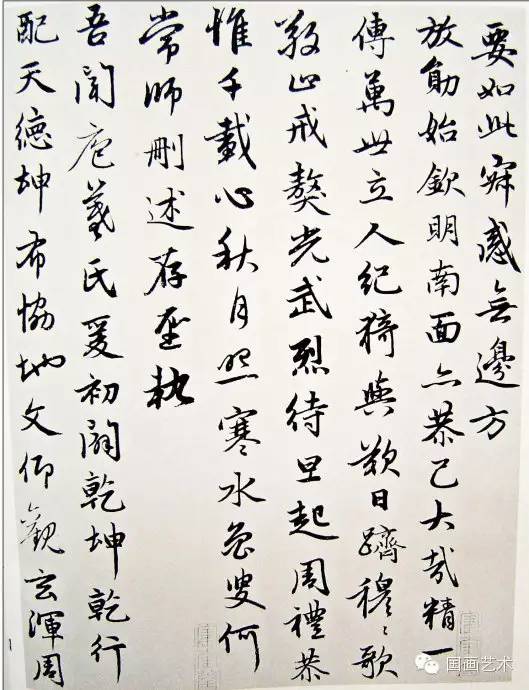 要如此寂感無邊方
放勛始欽明南面亦恭己大哉精一
傳萬世立人紀猗與歎日躋穆々歌
敬止戒獒光武烈待旦起周禮恭
惟千載心秋月照寒水魯叟何
常師刪述存聖軌
吾聞庖羲氏爰初闢乾坤乾行
配天德坤布協地文仰觀玄渾周
国画艺术